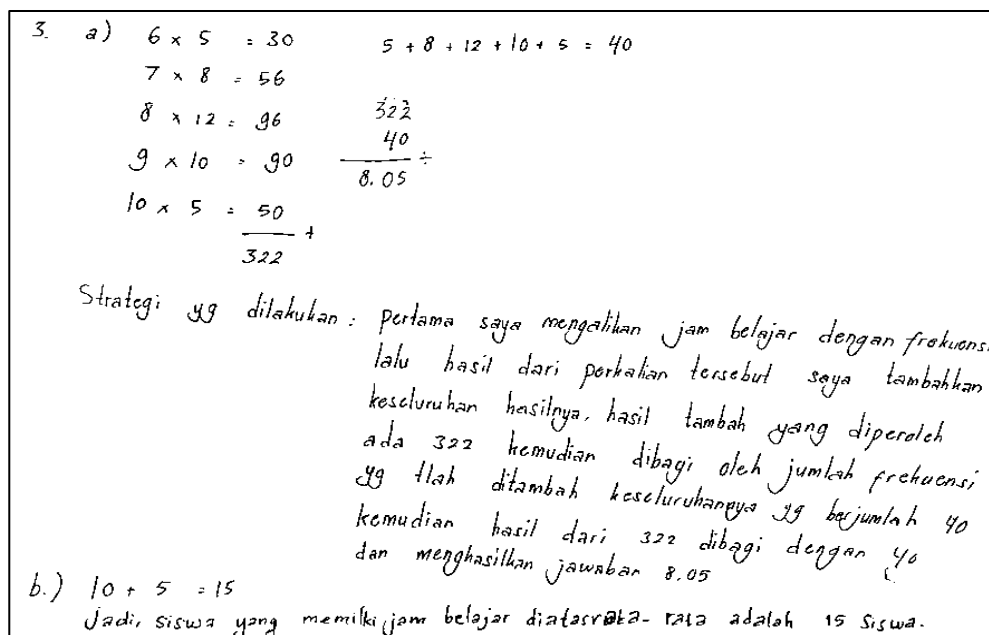 3. a) 6 × 5 = 30 5 + 8 + 12 + 10 + 5 = 40
7 × 8 = 56
8 × 12 = 96 322
9 × 10 = 90 40 ÷
10 × 5 = 50 8.05
+
322
Strategi yg dilakukan : pertama saya mengalikan jam belajar dengan frekuensi
lalu hasil dari perkalian tersebut saya tambahkan
keseluruhan hasilnya, hasil tambah yang diperoleh
ada 322 kemudian dibagi oleh jumlah frekuensi
yg tlah ditambah keseluruhannya yg berjumlah 40
kemudian hasil dari 322 dibagi dengan 40
dan menghasilkan jawaban 8.05
b.) 10 + 5 = 15
Jadi, siswa yang memilki jam belajar diatasrata-rata adalah 15 siswa.